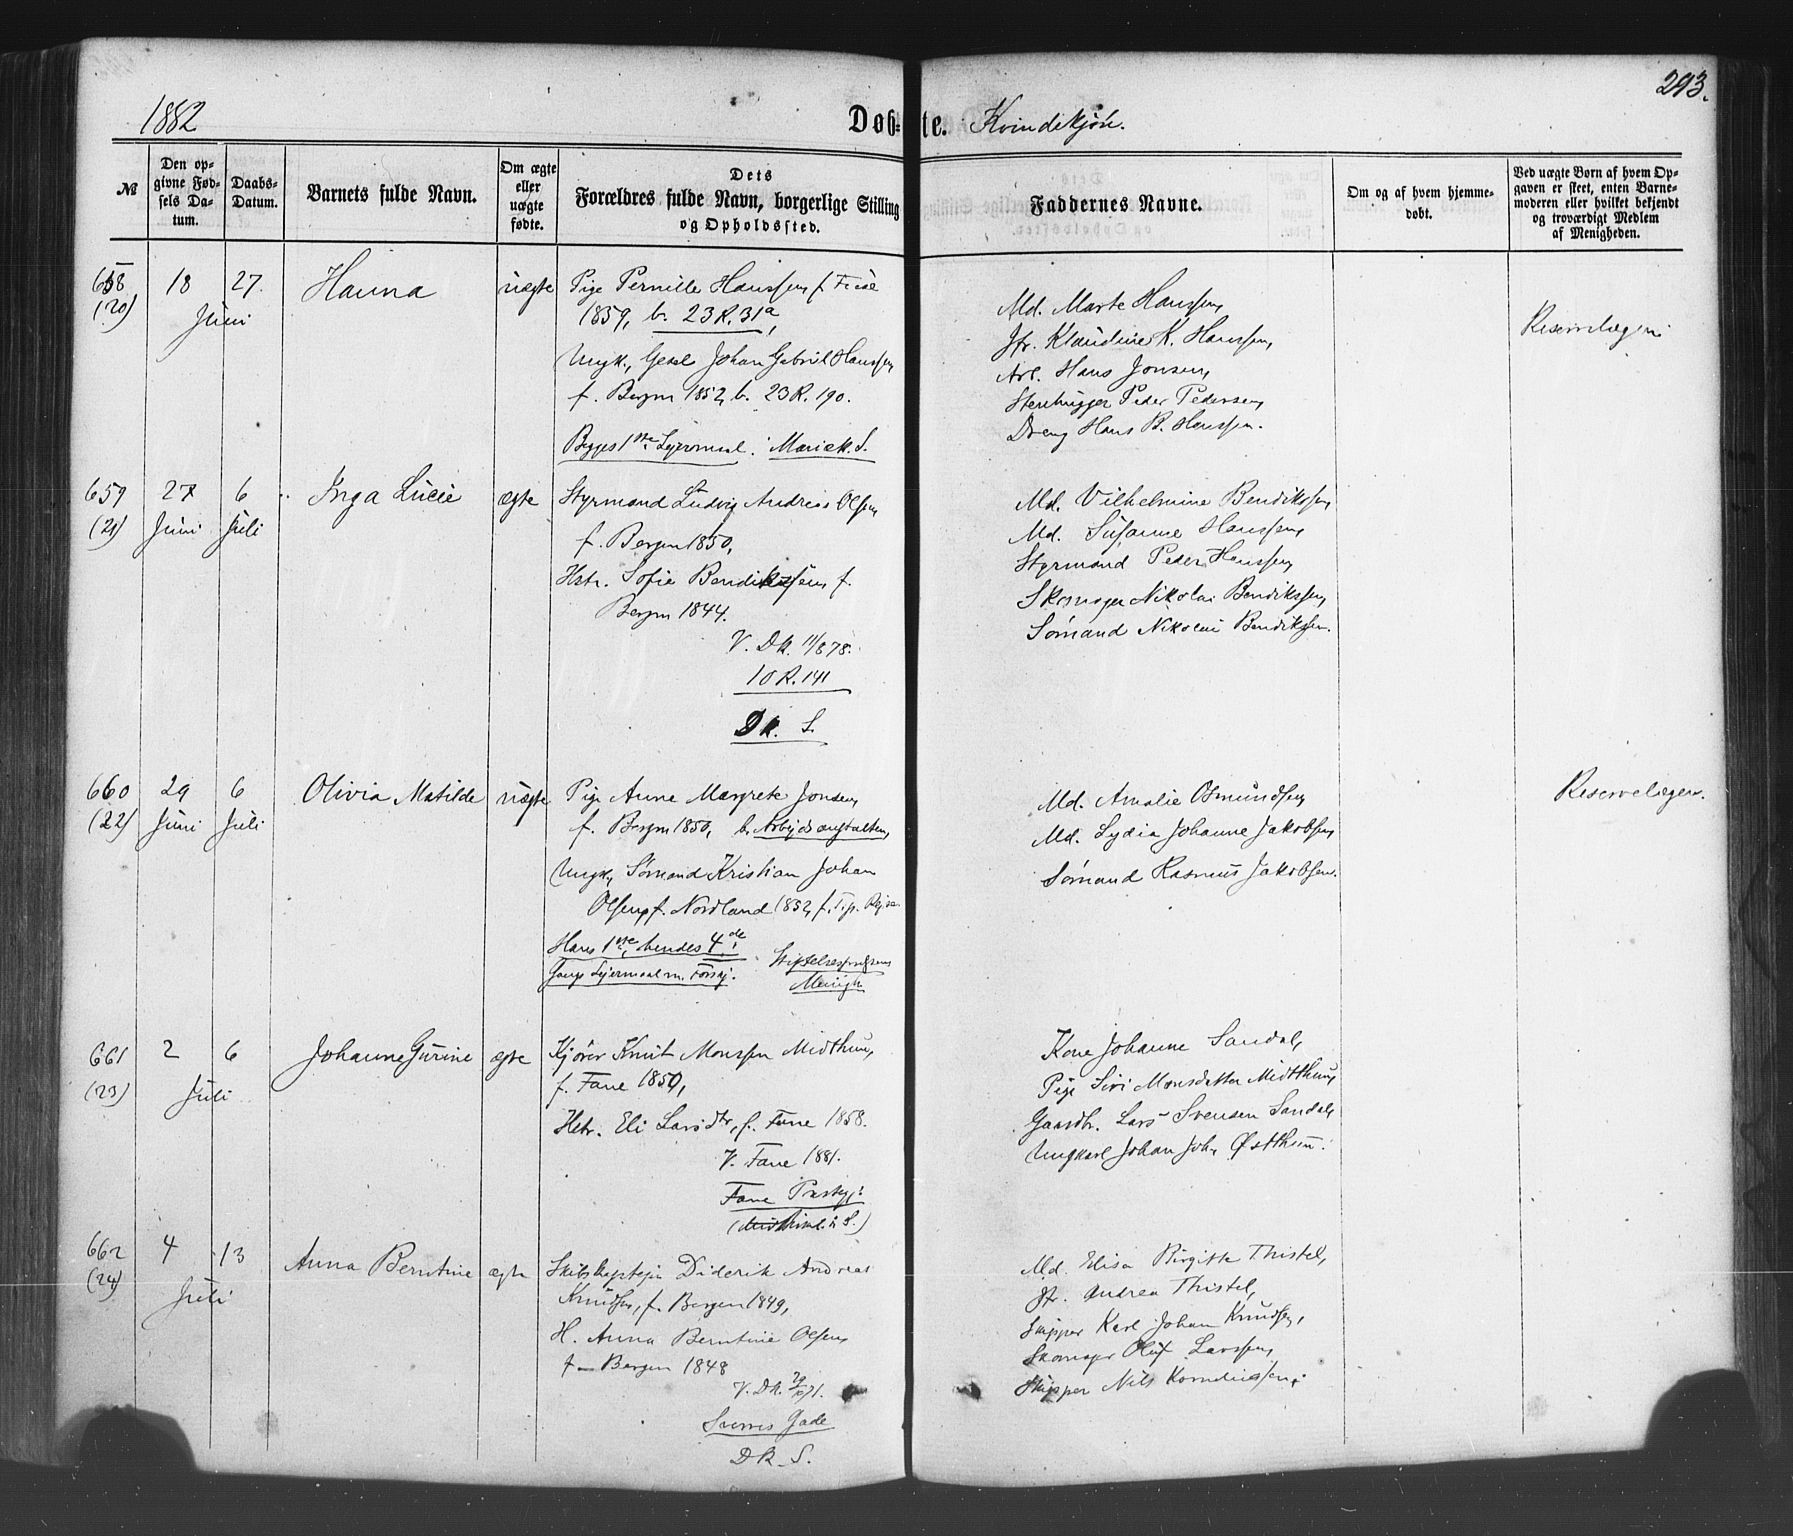 293.
1882
Døb-te. Kvindekjøn.
№
Den op-
givne Fød-
sels Da-
tum.
Daabs-
Datum.
Barnets fulde Navn.
Om ægte
eller
uægte
fødte.
Dets
Forældres fulde Navn, borgerlige Stilling
og Opholdssted.
Faddernes Navne.
Om og af hvem hjemme-
døbt.
Ved uægte Børn af hvem Op-
gaven er skeet, enten Barne-
moderen eller hvilket bekjendt
og troværdigt Medlem
af Menigheden.
658
(20)
18 27
Juni
Hanna
uægte
Pige Pernille Hanssen, f.
1859, b. 23 R. 31a,
Ungk., Gesel Johan Gabriel Hanssen
f. Bergen 1852, b. 23 R. 190.
Begges 1ste Leiermaal. Mariek. S.
Md. Marte Hanssen,
Jfr. Klaudine K. Hanssen,
Arb. Hans Jonsen,
Stenhugger Peder Pedersen,
Dreng Hans B. Hanssen.
Reservelægen
659
(21)
27 6
Juni Juli
Inga Lucie
ægte
Styrmand Ludvig Andreas Olsen,
f. Bergen 1850,
Hstr. Sofie Bendikssen, f.
Bergen 1844.
V. DK. 11/8 78.
10 R. 141
DK. S.
Md. Vilhelmine Bendikssen,
Md. Susanne Hanssen,
Styrmand Peder Hanssen,
Skomager Nikolai Bendikssen,
Sømand Nikolai Bendikssen.
660
(22)
29 6
Juni Juli
Olivia Matilde
uægte
Pige Anne Margrete Jonsen,
f. Bergen 1850, b. Arbeidsanstalten,
Ungk., Sømand Kristian Johan
Olsen, f. Nordland 1852, f. T.
Hans 1ste, hendes 4de
Gangs Leiermaal m. Forskj.
Stiftelsespræstens
Menigh.
Md. Amalie Osmundsen,
Md. Lydia Johanne Jakobsen,
Sømand Rasmus Jakobsen.
Reservelægen.
661
(23)
2 6
Juli
Johanne Gurine
ægte
Kjører Knut Monssen Midthun,
f. Fane 1850,
Hstr. Eli Larsdtr., f. Fane 1858.
V. Fane 1881.
Fane Præstegj.
Kone Johanne Sandal,
Pige Siri Monsdatter Midthun,
Gaardbr. Lars Svensen Sandal,
Ungkarl Johan Joh. Østthun.
662
(24)
4 13
Juli
Anna Berntine
ægte
Skibskaptein Diderik Andreas
Knudsen, f. Bergen 1849,
H. Anna Berntine Olsen,
f. Bergen 1848
V. DK. 71.
Sverres Gade
DK. S.
Md. Elisa Birgitte Thistel,
Jfr. Andrea Thistel,
Skipper Karl Johan Knudsen,
Skomager Oluf Larssen,
Skipper Nils Korneliussen.